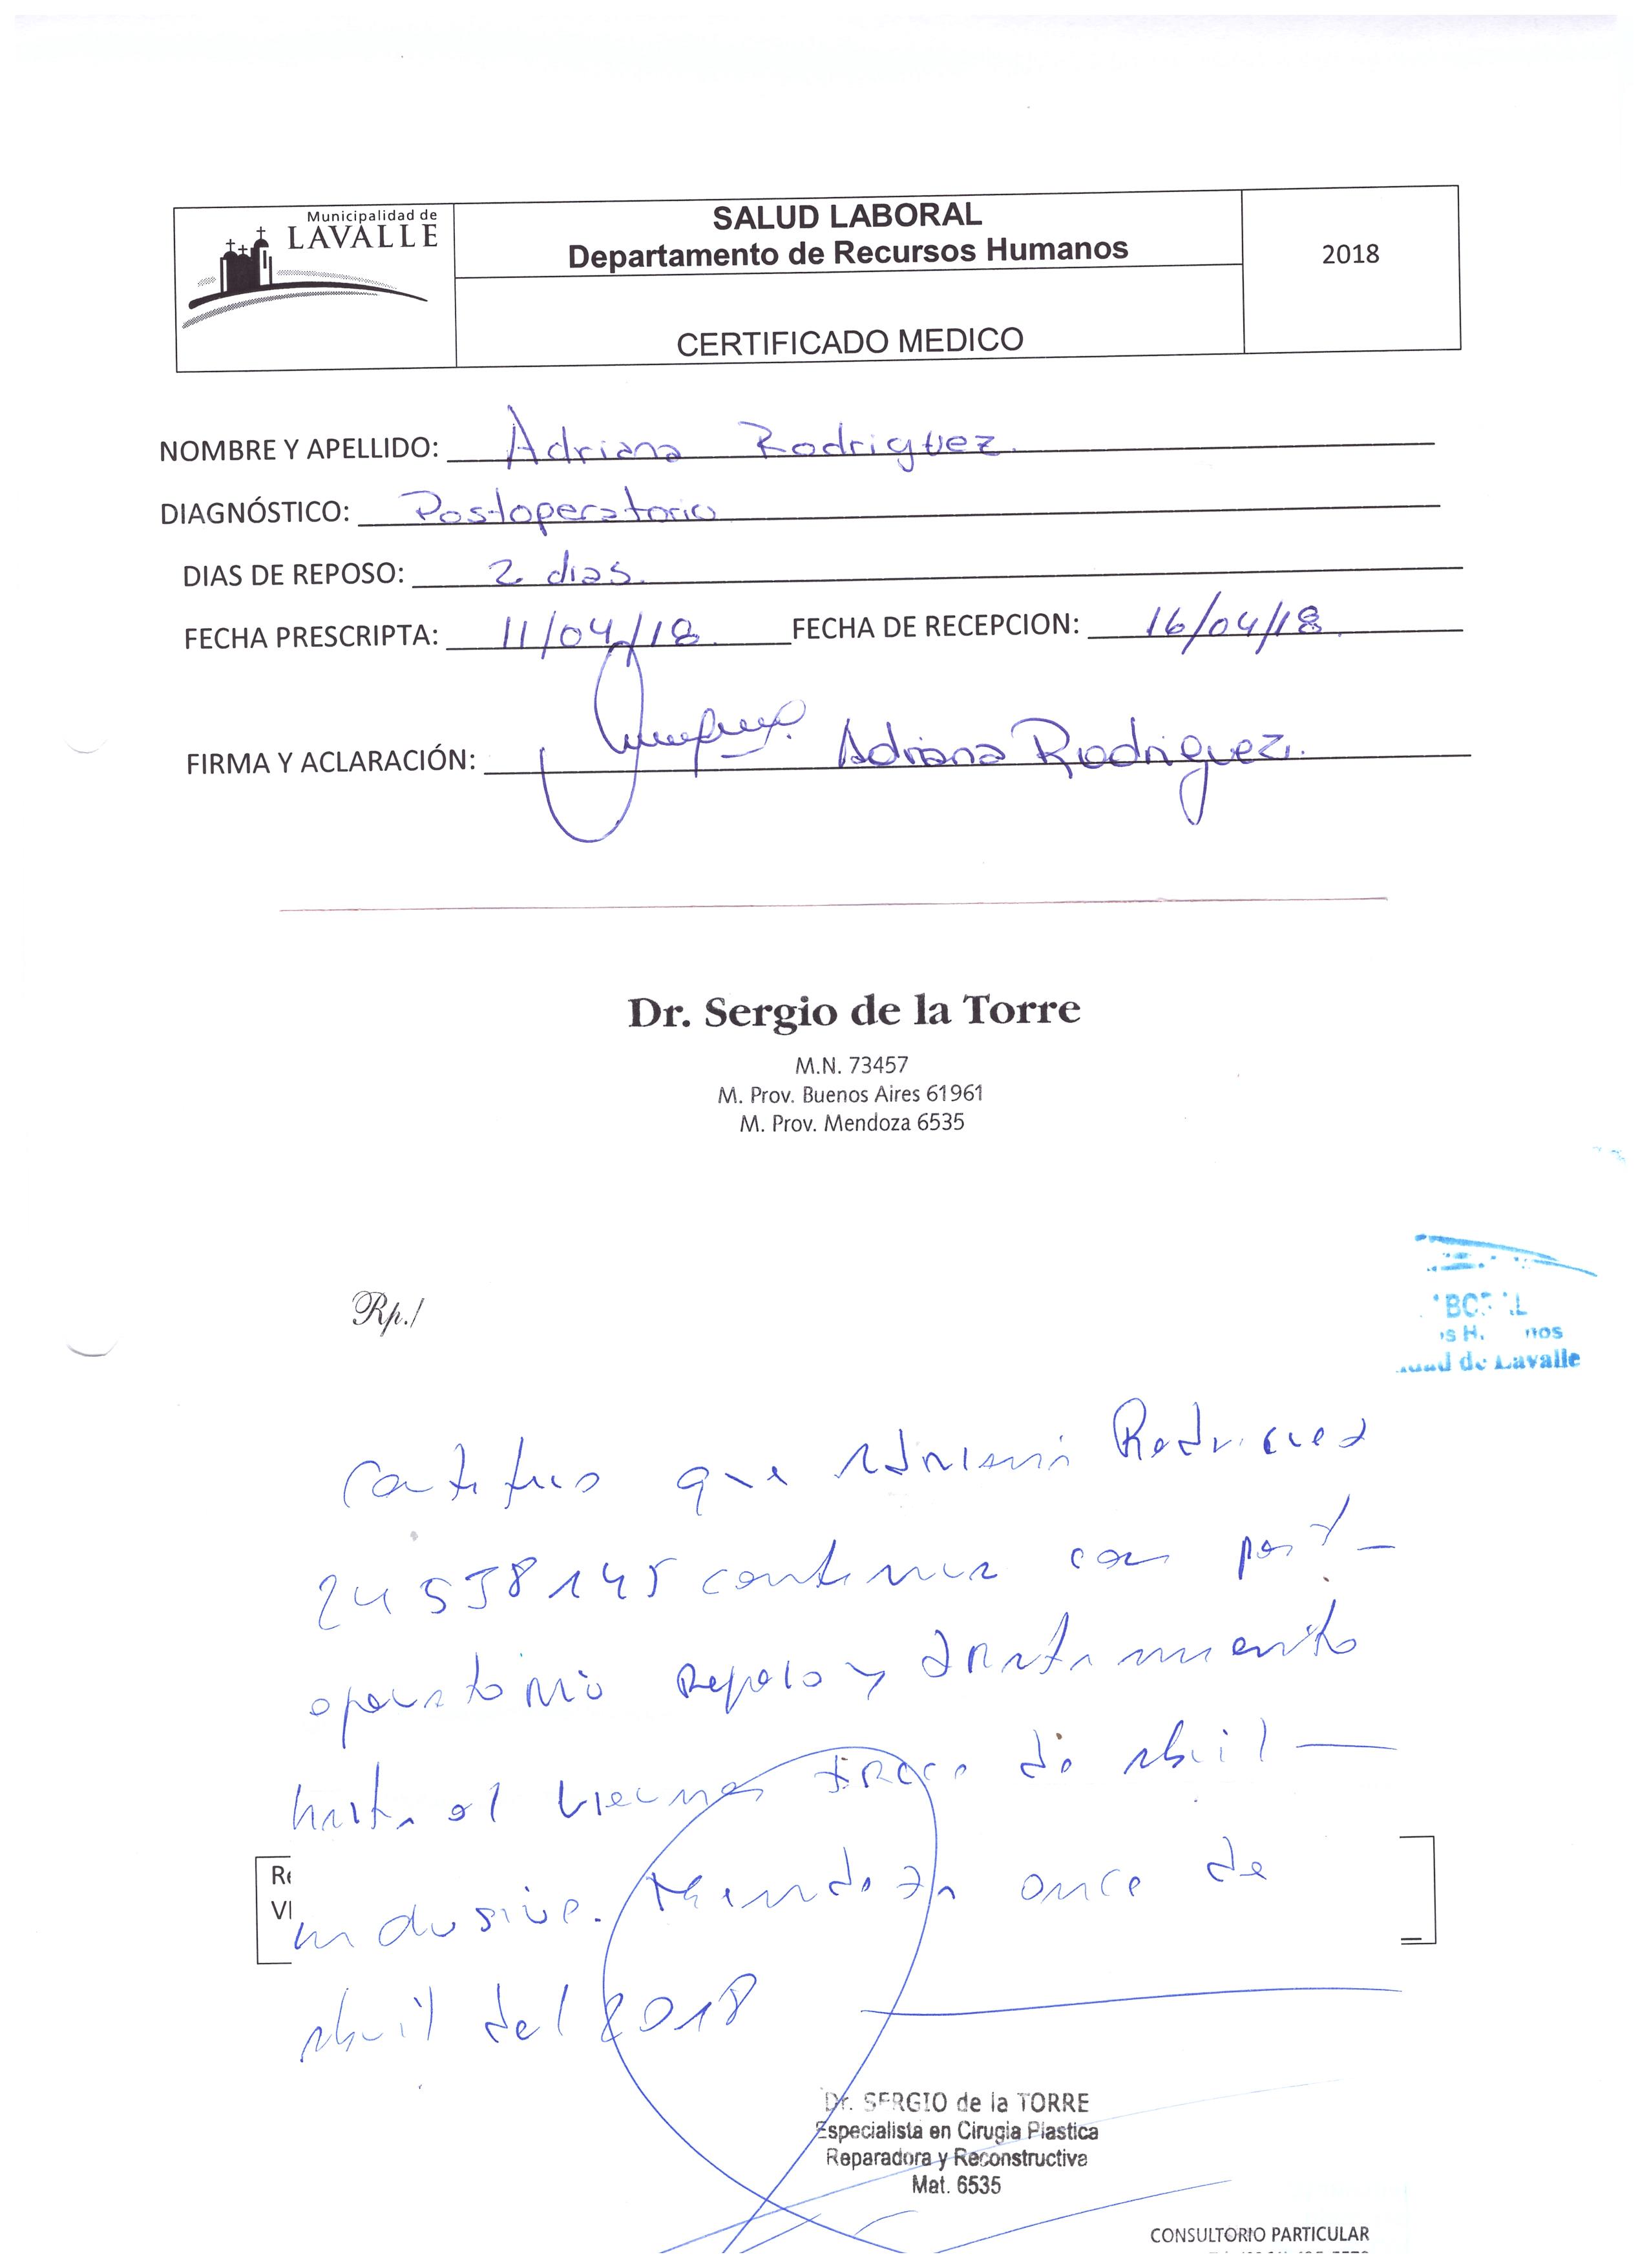 Municipalidad de
LAVALLE
SALUD LABORAL
Departamento de Recursos Humanos
2018
CERTIFICADO MEDICO
NOMBRE Y APELLIDO: Adriana Rodriguez.
DIAGNÓSTICO: Postoperatorio
DIAS DE REPOSO: 2 dias.
FECHA PRESCRIPTA: 11/04/18. FECHA DE RECEPCION: 16/04/18.
FIRMA Y ACLARACIÓN: Adriana Rodriguez.
Dr. Sergio de la Torre
M.N. 73457
M. Prov. Buenos Aires 61961
M. Prov. Mendoza 6535
Rp./
de Lavalle
Certifico que Adriana Rodriguez
24538145 continua con post-
operatorio Reposo y tratamiento
hasta el viernes trece de abril
inclusive. Mendoza once de
abril del 2018
Dr. SERGIO de la TORRE
Especialista en Cirugia Plastica
Reparadora y Reconstructiva
Mat. 6535
CONSULTORIO PARTICULAR